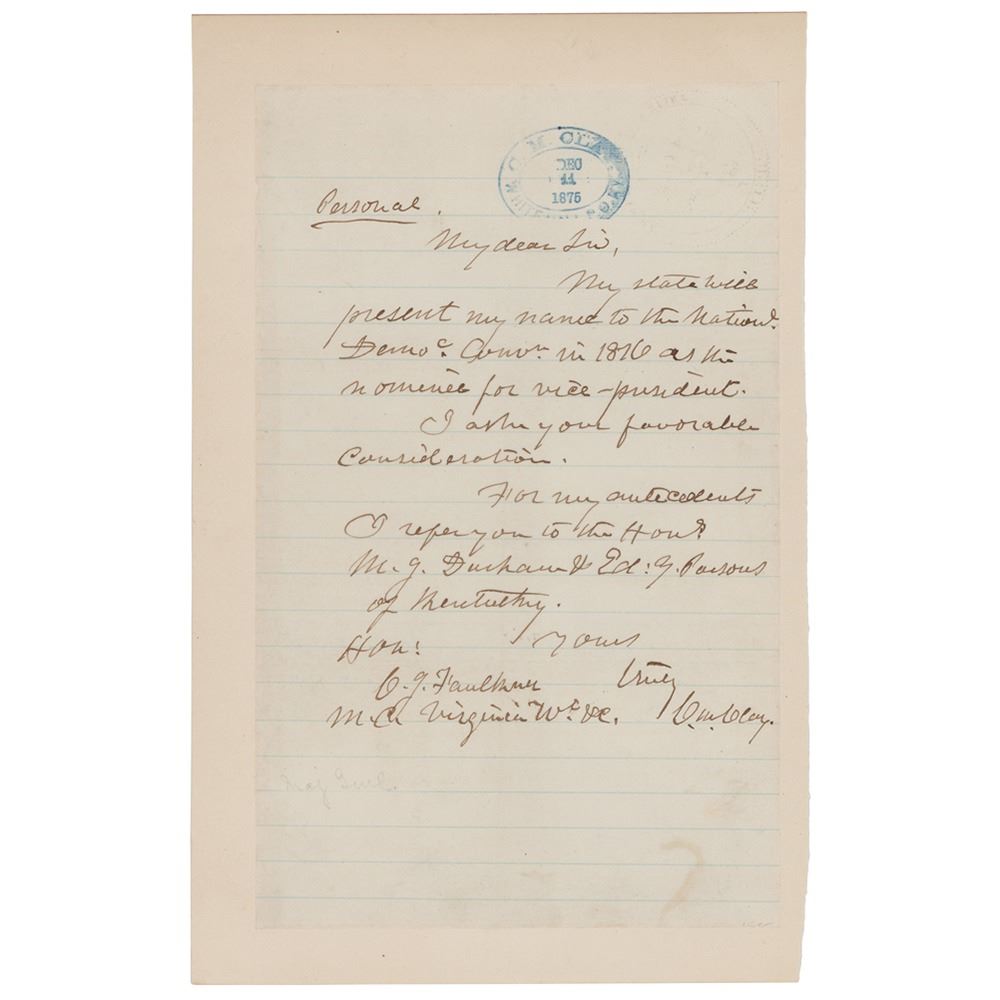 C. M. CLAY
DEC
11
1875
WHITEHALL P.O. KY.
Personal.
My dear Sir,
My state will
present my name to the Nation.l
Demo.c Conv.n in 1876 as the
nominee for vice-president.
I ask your favorable
Consideration.
For my antecedents
I refer you to the Hon.s
M. J. Durham & Ed: Y. Parsons
of Kentucky.
Hon: Yours
C. J. Faulkner truly
M.C. Virginia W.t &c. C. M. Clay.
Maj Genl.